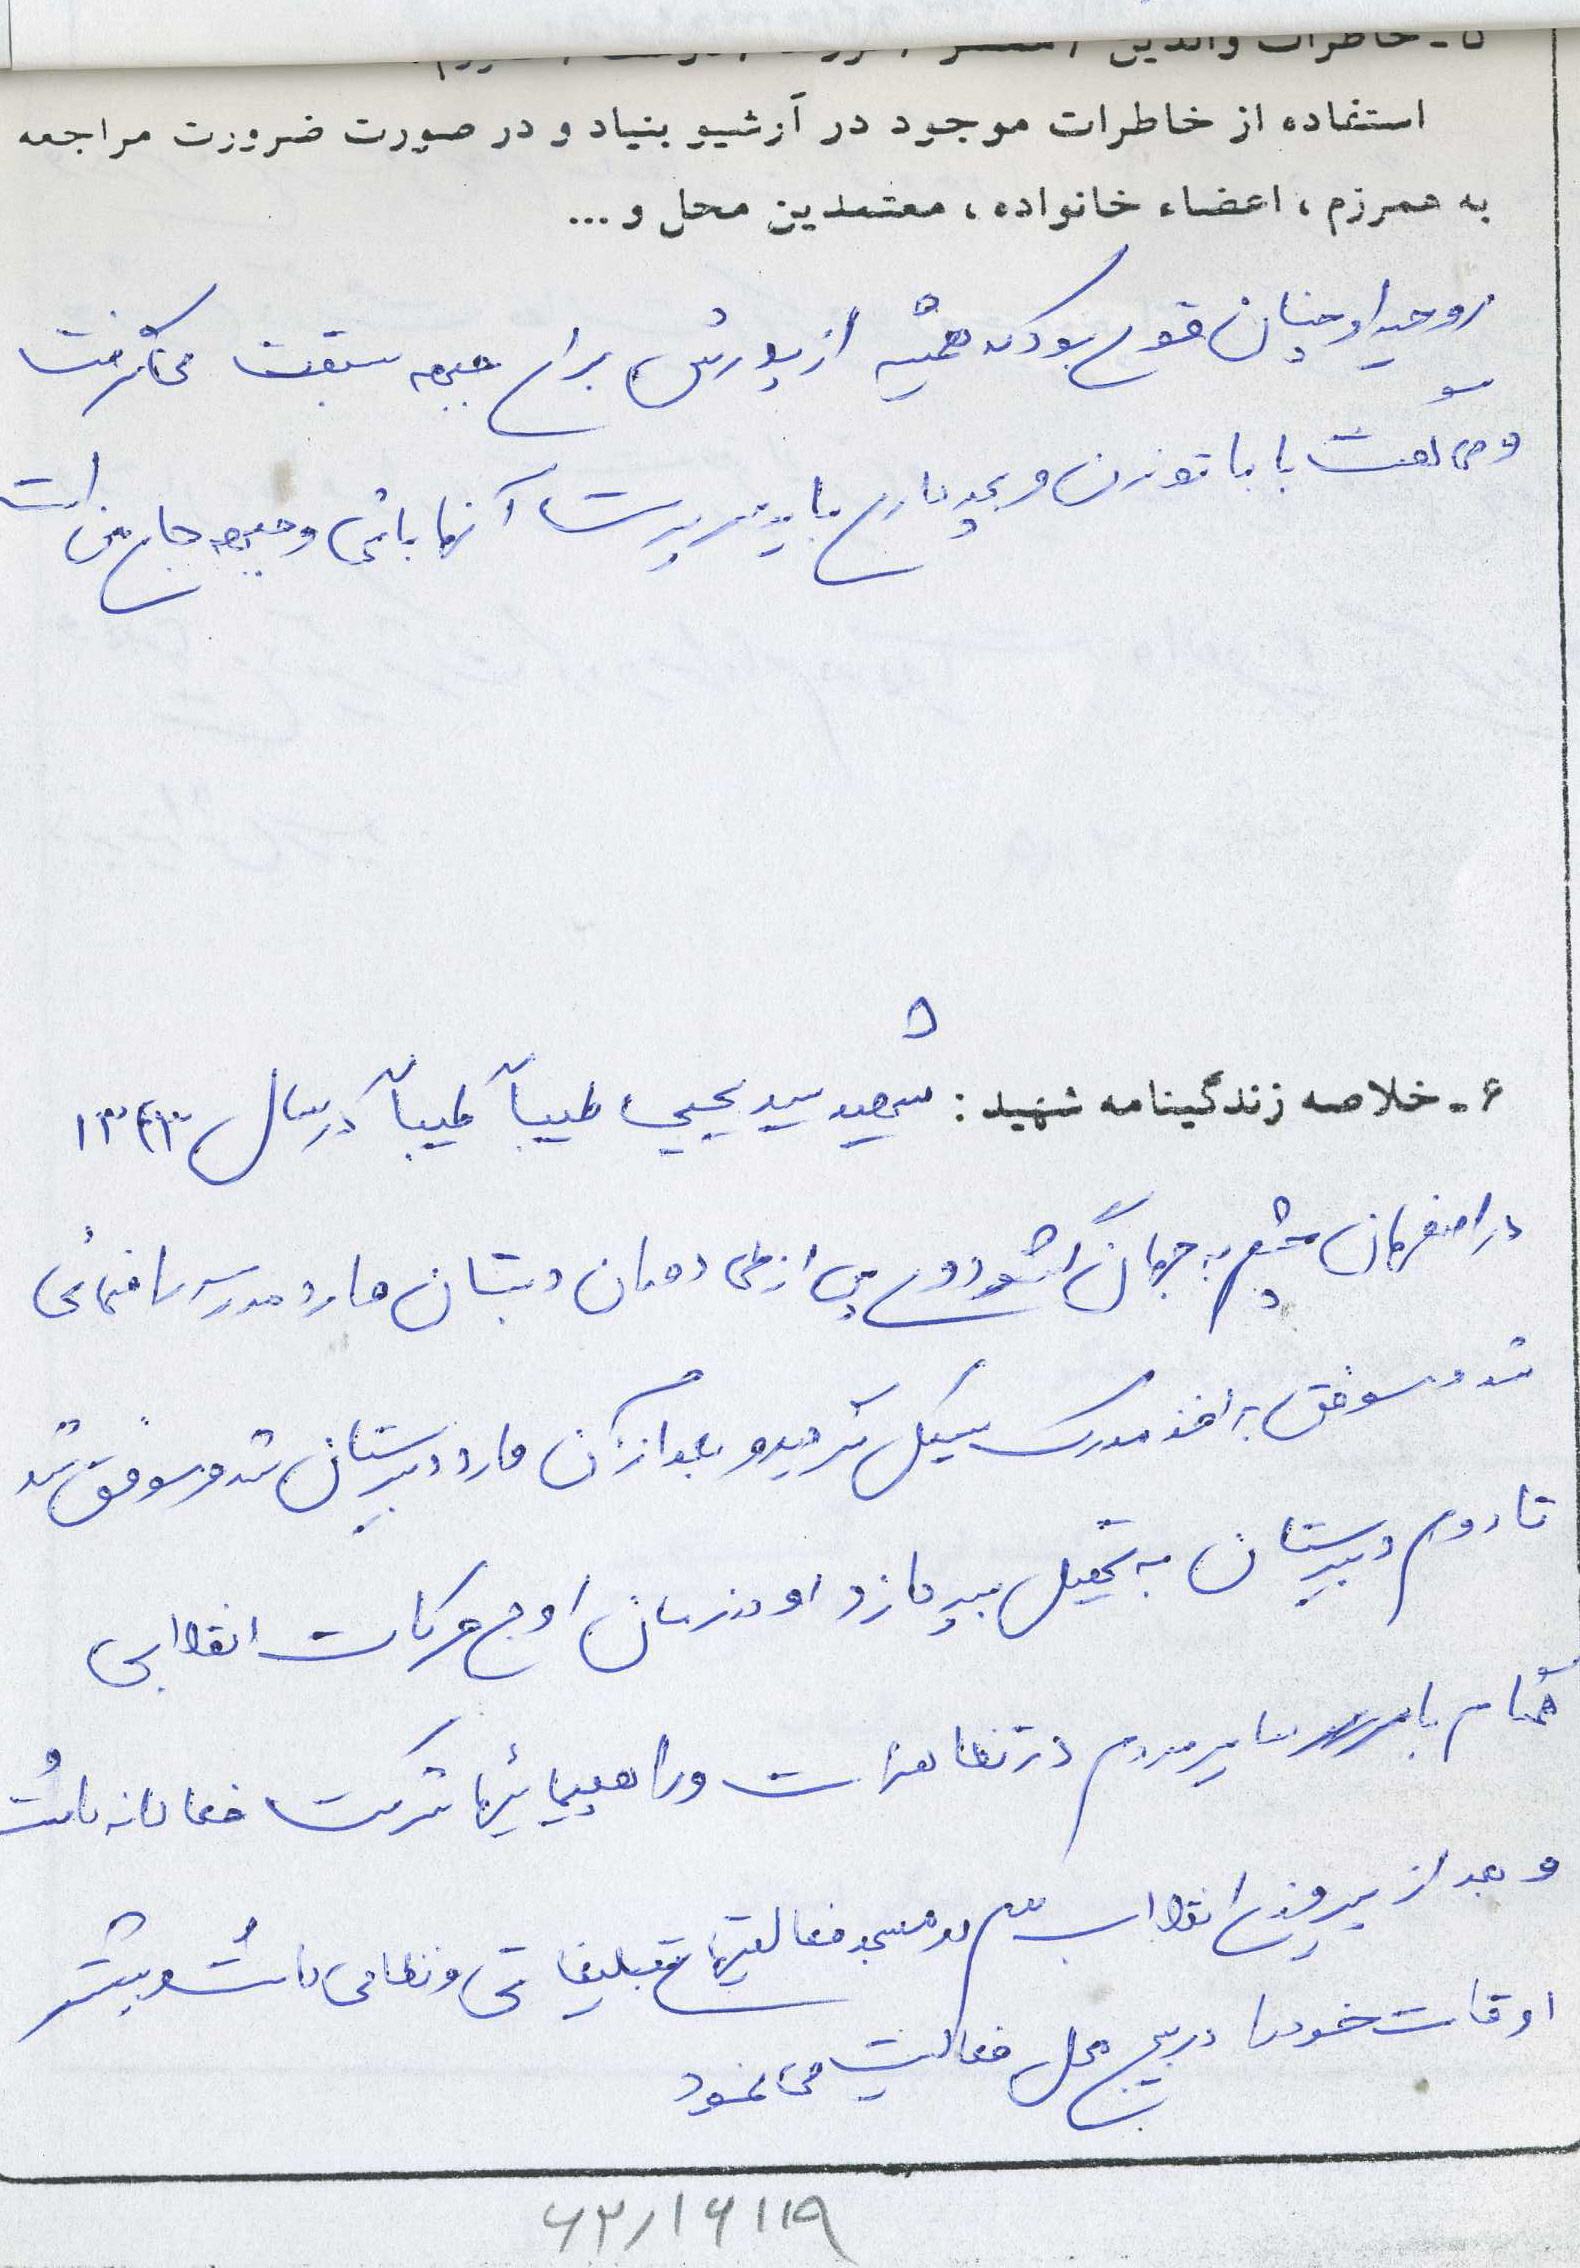 ۵ـ خاطرات والدین / همسر / فرزند / دوست / همرزم:
استفاده از خاطرات موجود در آرشیو بنیاد و در صورت ضرورت مراجعه
به همرزم ، اعضاء خانواده ، معتمدین محل و ...
روحیه او چنان قوی بود که همیشه از پدرش برای جبهه سبقت می گرفت
و می گفت بابا تو زن و بچه داری باید سرپرست آنها باشی و جبهه جای من است
۶ـ خلاصه زندگینامه شهید : شهید سید یحیی طیبا طیبا در سال ۱۳۴۳
در اصفهان چشم به جهان گشود وی پس از طی دوران دبستان وارد مدرسه راهنمائی
شد و موفق به اخذ مدرک سیکل گردید و بعد از آن وارد دبیرستان شد و موفق شد
تا دوم دبیرستان به تحصیل بپردازد او در زمان اوج حرکات انقلابی
همگام با سایر مردم در تظاهرات و راهپیمائیها شرکت فعالانه داشت
و بعد از پیروزی انقلاب هم در مسجد فعالیتهای تبلیغاتی و نظامی داشت و بیشتر
اوقات خود را در بسیج محل فعالیت می نمود
۶۲/۱۶۱۱۹